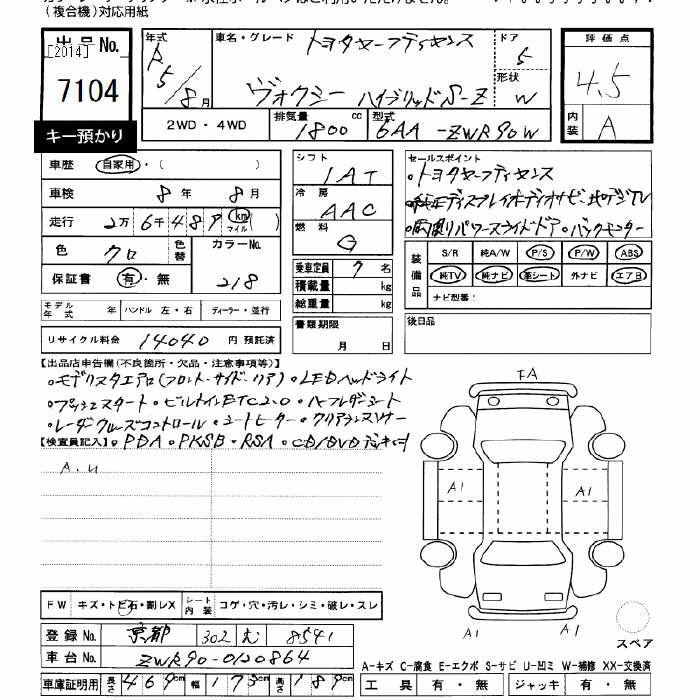 (複合機)対応用紙
出品 No. [2014]
7104
キー預かり
年式 R5/8月
車名・グレード トヨタセーフティセンス
ヴォクシー ハイブリッドS-Z
ドア 5
形状 W
評価点 4.5
内装 A
2WD・4WD
排気量 1800 cc
型式 6AA-ZWR90W
車歴 自家用・( )
車検 8年 8月
走行 2万6千489 km マイル ( )
色 クロ
色替
カラーNo. 218
保証書 有・無
シフト IAT
冷房 AAC
燃料 G
乗車定員 7名
積載量 kg
総重量 kg
書類期限 月 日
セールスポイント
・トヨタセーフティセンス
・純正ディスプレイオーディオナビ・地デジTV
・両側パワースライドドア・バックモニター
装備品 S/R 純A/W P/S P/W ABS
純TV 純ナビ 革シート 外ナビ エアB
ナビ型番:
モデル年式 年
ハンドル 左・右
ディーラー・並行
リサイクル料金 14040 円 預託済
後日品
【出品店申告欄(不良箇所・欠品・注意事項等)】
・モデリスタエアロ(フロント・サイド・リア)・LEDヘッドライト
・プッシュスタート・ビルトインETC2.0・ハーフレザーシート
・レーダークルーズコントロール・シートヒーター・クリアランスソナー
【検査員記入】・PDA・PKSB・RSA・CD/DVDデッキ付
A.U
FA
A1
A1
A1
A1
A1
スペア
FW キズ・トビ石・割レX
シート内装 コゲ・穴・汚レ・シミ・破レ・スレ
登録No. 京都 302 む 8541
車台No. ZWR90-0120864
車庫証明用 長さ 469cm 幅 173cm 高さ 189cm
A-キズ C-腐食 E-エクボ S-サビ U-凹ミ W-補修 XX-交換済
工具 有・無
ジャッキ 有・無